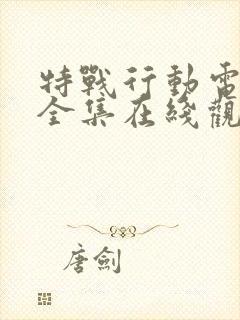 特戰行動電
全集在綫觀
唐劍